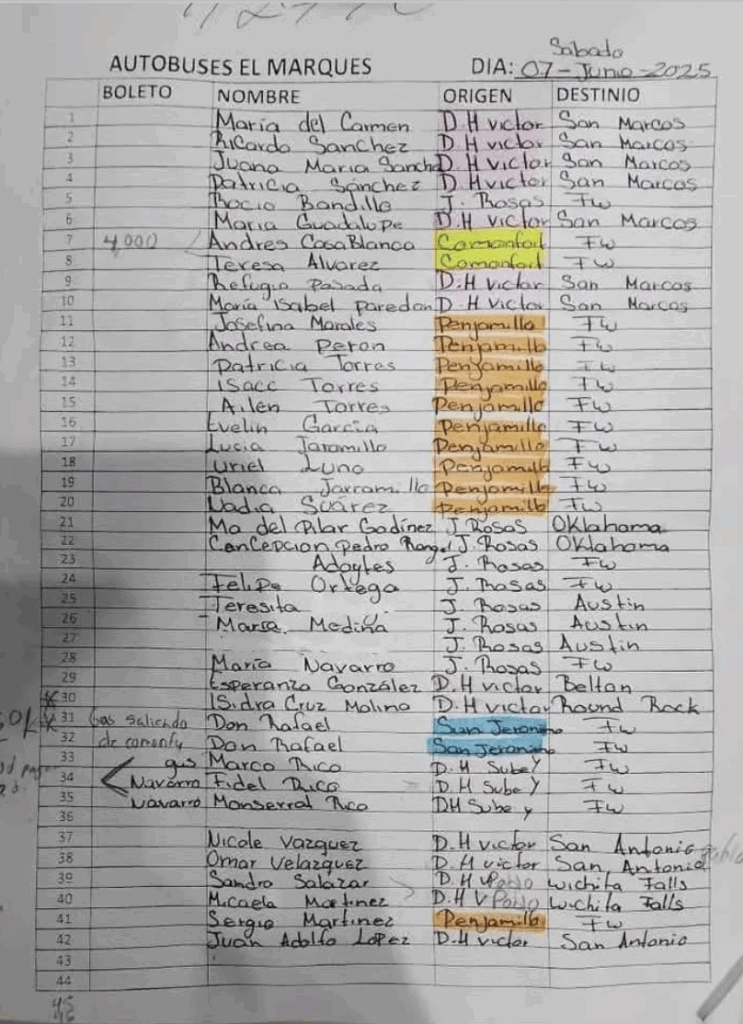 Sabado
AUTOBUSES EL MARQUES DIA: 07-Junio-2025
BOLETO NOMBRE ORIGEN DESTINIO
1 María del Carmen D.H victor San Marcos
2 Ricardo Sanchez D.H victor San Marcos
3 Juana Maria Sanche D H victor San Marcos
4 Patricia Sánchez D H victor San Marcos
5 Rocio Bandillo J. Rosas Fw
6 Maria Guadalupe D.H victor San Marcos
7 4,000 Andres CasaBlanca Comonfort Fw
8 Teresa Alvarez Comonfort Fw
9 Refugio Posada D.H victor San Marcos
10 María Isabel paredon D.H victor San Marcos
11 Josefina Morales Penjamillo Fw
12 Andrea Peron Penjamillo Fw
13 Patricia Torres Penjamillo Fw
14 Isacc Torres Penjamillo Fw
15 Ailen Torres Penjamillo Fw
16 Evelin García Penjamillo Fw
17 Lucia Jaramillo Penjamillo Fw
18 Uriel Luna Penjamillo Fw
19 Blanca Jarramillo Penjamillo Fw
20 Nadia Suárez Penjamillo Fw
21 Ma del Pilar Godínez J. Rosas Oklahoma
22 Concepcion pedro Rangel J. Rosas Oklahoma
23 Adaytes J. Rosas Fw
24 Felipe Ortega J. Rosas Fw
25 Teresita J. Rosas Austin
26 Maria Medina J. Rosas Austin
27 J. Rosas Austin
28 María Navarro J. Rosas Fw
29 Esperanza González D.H victor Belton
30 Isidra Cruz Molino D.H victor Round Rock
31 Gas saliendo Don Rafael San Jeronimo Fw
32 de comonfy Don Rafael San Jeronimo Fw
33 gus Marco Rico D.H Sube Y Fw
34 Navarro Fidel Rico D.H Sube Y Fw
35 Navarro Monserrat Rico DH Sube y Fw
36
37 Nicole Vazquez D.H victor San Antonio
38 Omar Velazquez D.H victor San Antonio
39 Sandro Salazar D.H V Pablo Wichita Falls
40 Micaela Martinez D.H V Pablo Wichita Falls
41 Sergio Martinez Penjamillo Fw
42 Juan Adolfo Lopez D.H victor San Antonio
43
44
45
46